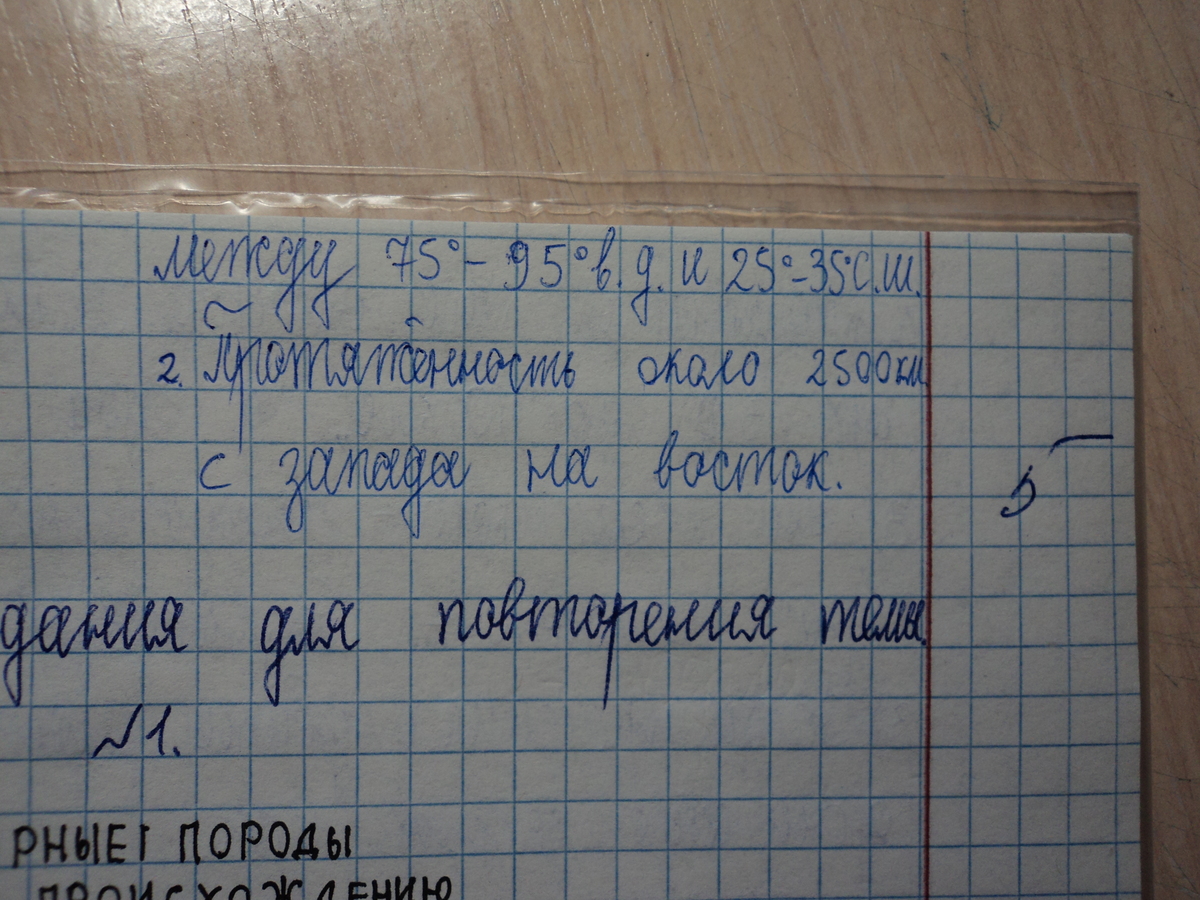 между 75°-95°в.д. и 25°-35°С.Ш.
2. Протяжённость около 2500км
с запада на восток.
5
дания для повторения темы.
№1.
РНЫЕ ПОРОДЫ
ПРОИСХОЖДЕНИЮ